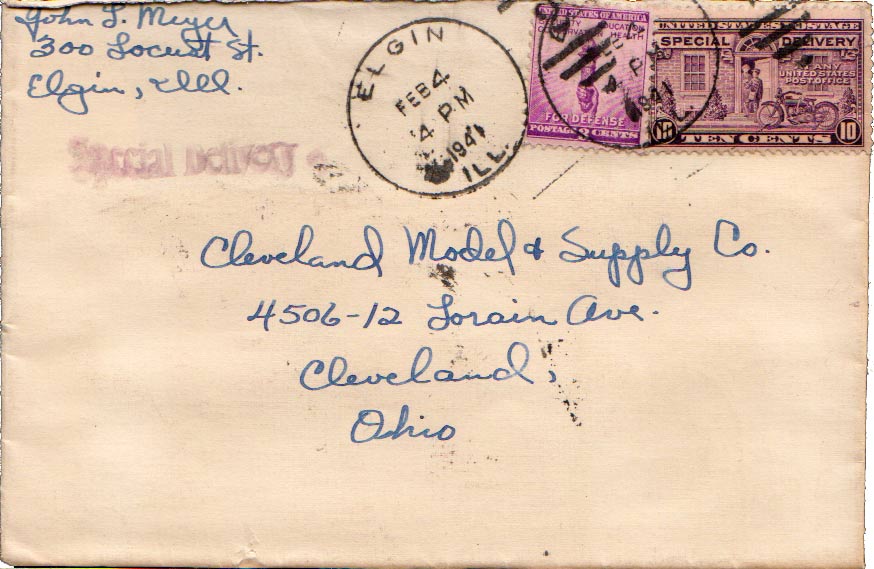 John L. Meyer
300 Locust St.
Elgin, Ill.
ELGIN
FEB 4
4 PM
1941
ILL.
UNITED STATES OF AMERICA
EDUCATION
HEALTH
FOR DEFENSE
POSTAGE 3 CENTS
PM
1941
UNITED STATES POSTAGE
SPECIAL DELIVERY
AT ANY
UNITED STATES
POST OFFICE
TEN CENTS 10
Cleveland Model & Supply Co.
4506-12 Lorain Ave.
Cleveland,
Ohio